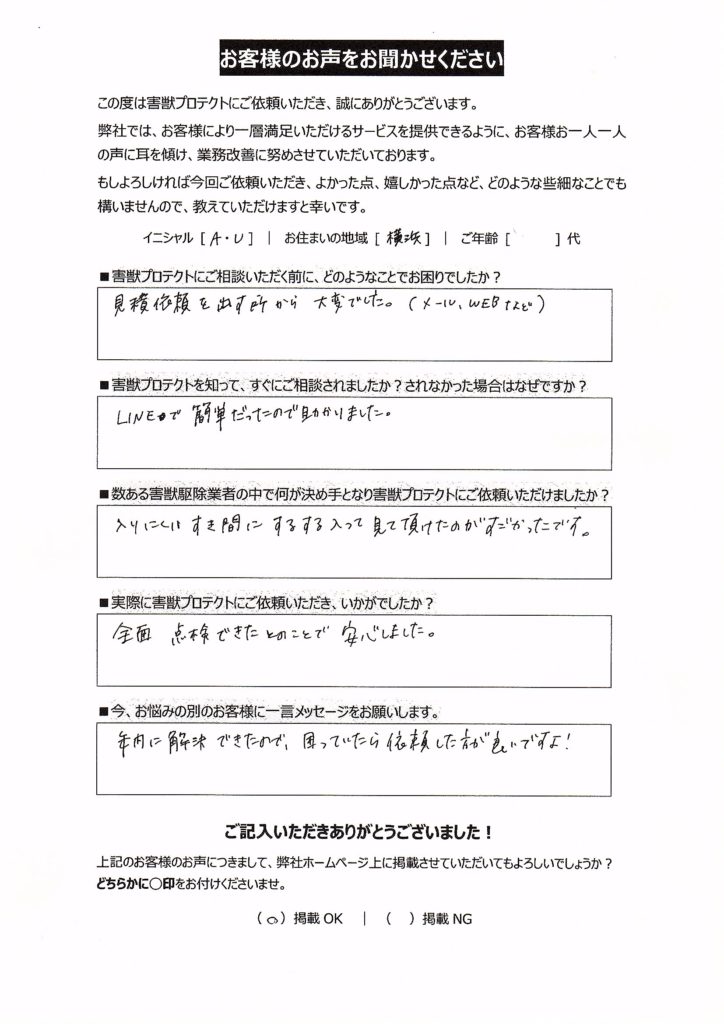 お客様のお声をお聞かせください
この度は害獣プロテクトにご依頼いただき、誠にありがとうございます。
弊社では、お客様により一層満足いただけるサービスを提供できるように、お客様お一人一人
の声に耳を傾け、業務改善に努めさせていただいております。
もしよろしければ今回ご依頼いただき、よかった点、嬉しかった点など、どのような些細なことでも
構いませんので、教えていただけますと幸いです。
イニシャル [ A・U ] | お住まいの地域 [ 横浜 ] | ご年齢 [ ] 代
■害獣プロテクトにご相談いただく前に、どのようなことでお困りでしたか？
見積依頼を出す所から 大変でした。(メール、WEBなど)
■害獣プロテクトを知って、すぐにご相談されましたか？されなかった場合はなぜですか？
LINEで 簡単だったので助かりました。
■数ある害獣駆除業者の中で何が決め手となり害獣プロテクトにご依頼いただけましたか？
入りにくい すき間に するする入って 見て頂けたのがすごかったです。
■実際に害獣プロテクトにご依頼いただき、いかがでしたか？
全面 点検できたとのことで 安心しました。
■今、お悩みの別のお客様に一言メッセージをお願いします。
年内に解決できたので、困っていたら依頼した方が良いですよ！
ご記入いただきありがとうございました！
上記のお客様のお声につきまして、弊社ホームページ上に掲載させていただいてもよろしいでしょうか？
どちらかに〇印をお付けくださいませ。
(○) 掲載 OK | ( ) 掲載 NG